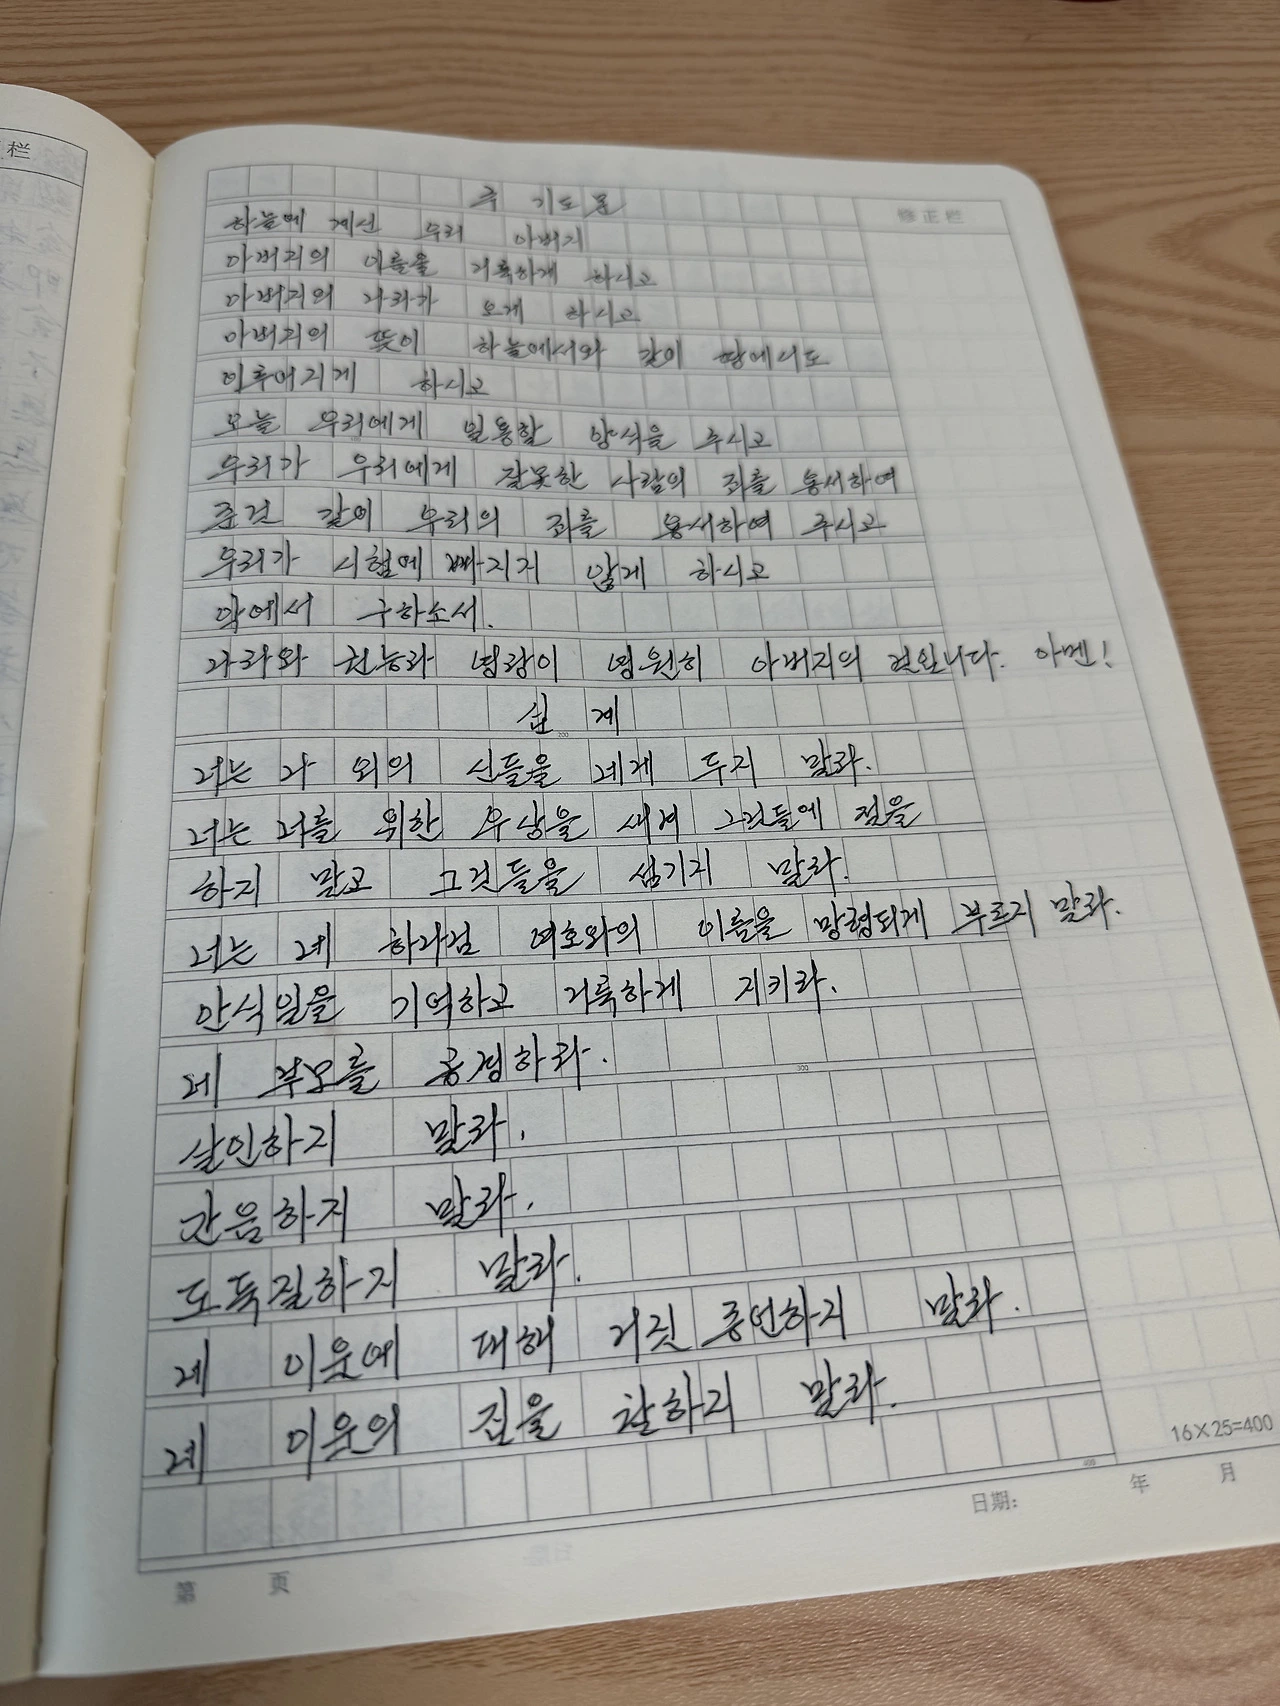 栏
주 기도문
修正栏
하늘에 계신 우리 아버지
아버지의 이름을 거룩하게 하시고
아버지의 나라가 오게 하시고
아버지의 뜻이 하늘에서와 같이 땅에서도
이루어지게 하시고
오늘 우리에게 일용할 양식을 주시고
우리가 우리에게 잘못한 사람의 죄를 용서하여
준것 같이 우리의 죄를 용서하여 주시고
우리가 시험에 빠지지 않게 하시고
악에서 구하소서.
나라와 권능과 영광이 영원히 아버지의 것입니다. 아멘!
십계
200
너는 나 외의 신들을 네게 두지 말라.
너는 너를 위한 우상을 새겨 그것들에 절을
하지 말고 그것들을 섬기지 말라.
너는 네 하나님 여호와의 이름을 망령되게 부르지 말라.
안식일을 기억하고 거룩하게 지키라.
네 부모를 공경하라.
300
살인하지 말라.
간음하지 말라.
도둑질하지 말라.
네 이웃에 대해 거짓 증언하지 말라.
네 이웃의 집을 탐하지 말라.
400
16×25=400
日期: 年 月
第 页